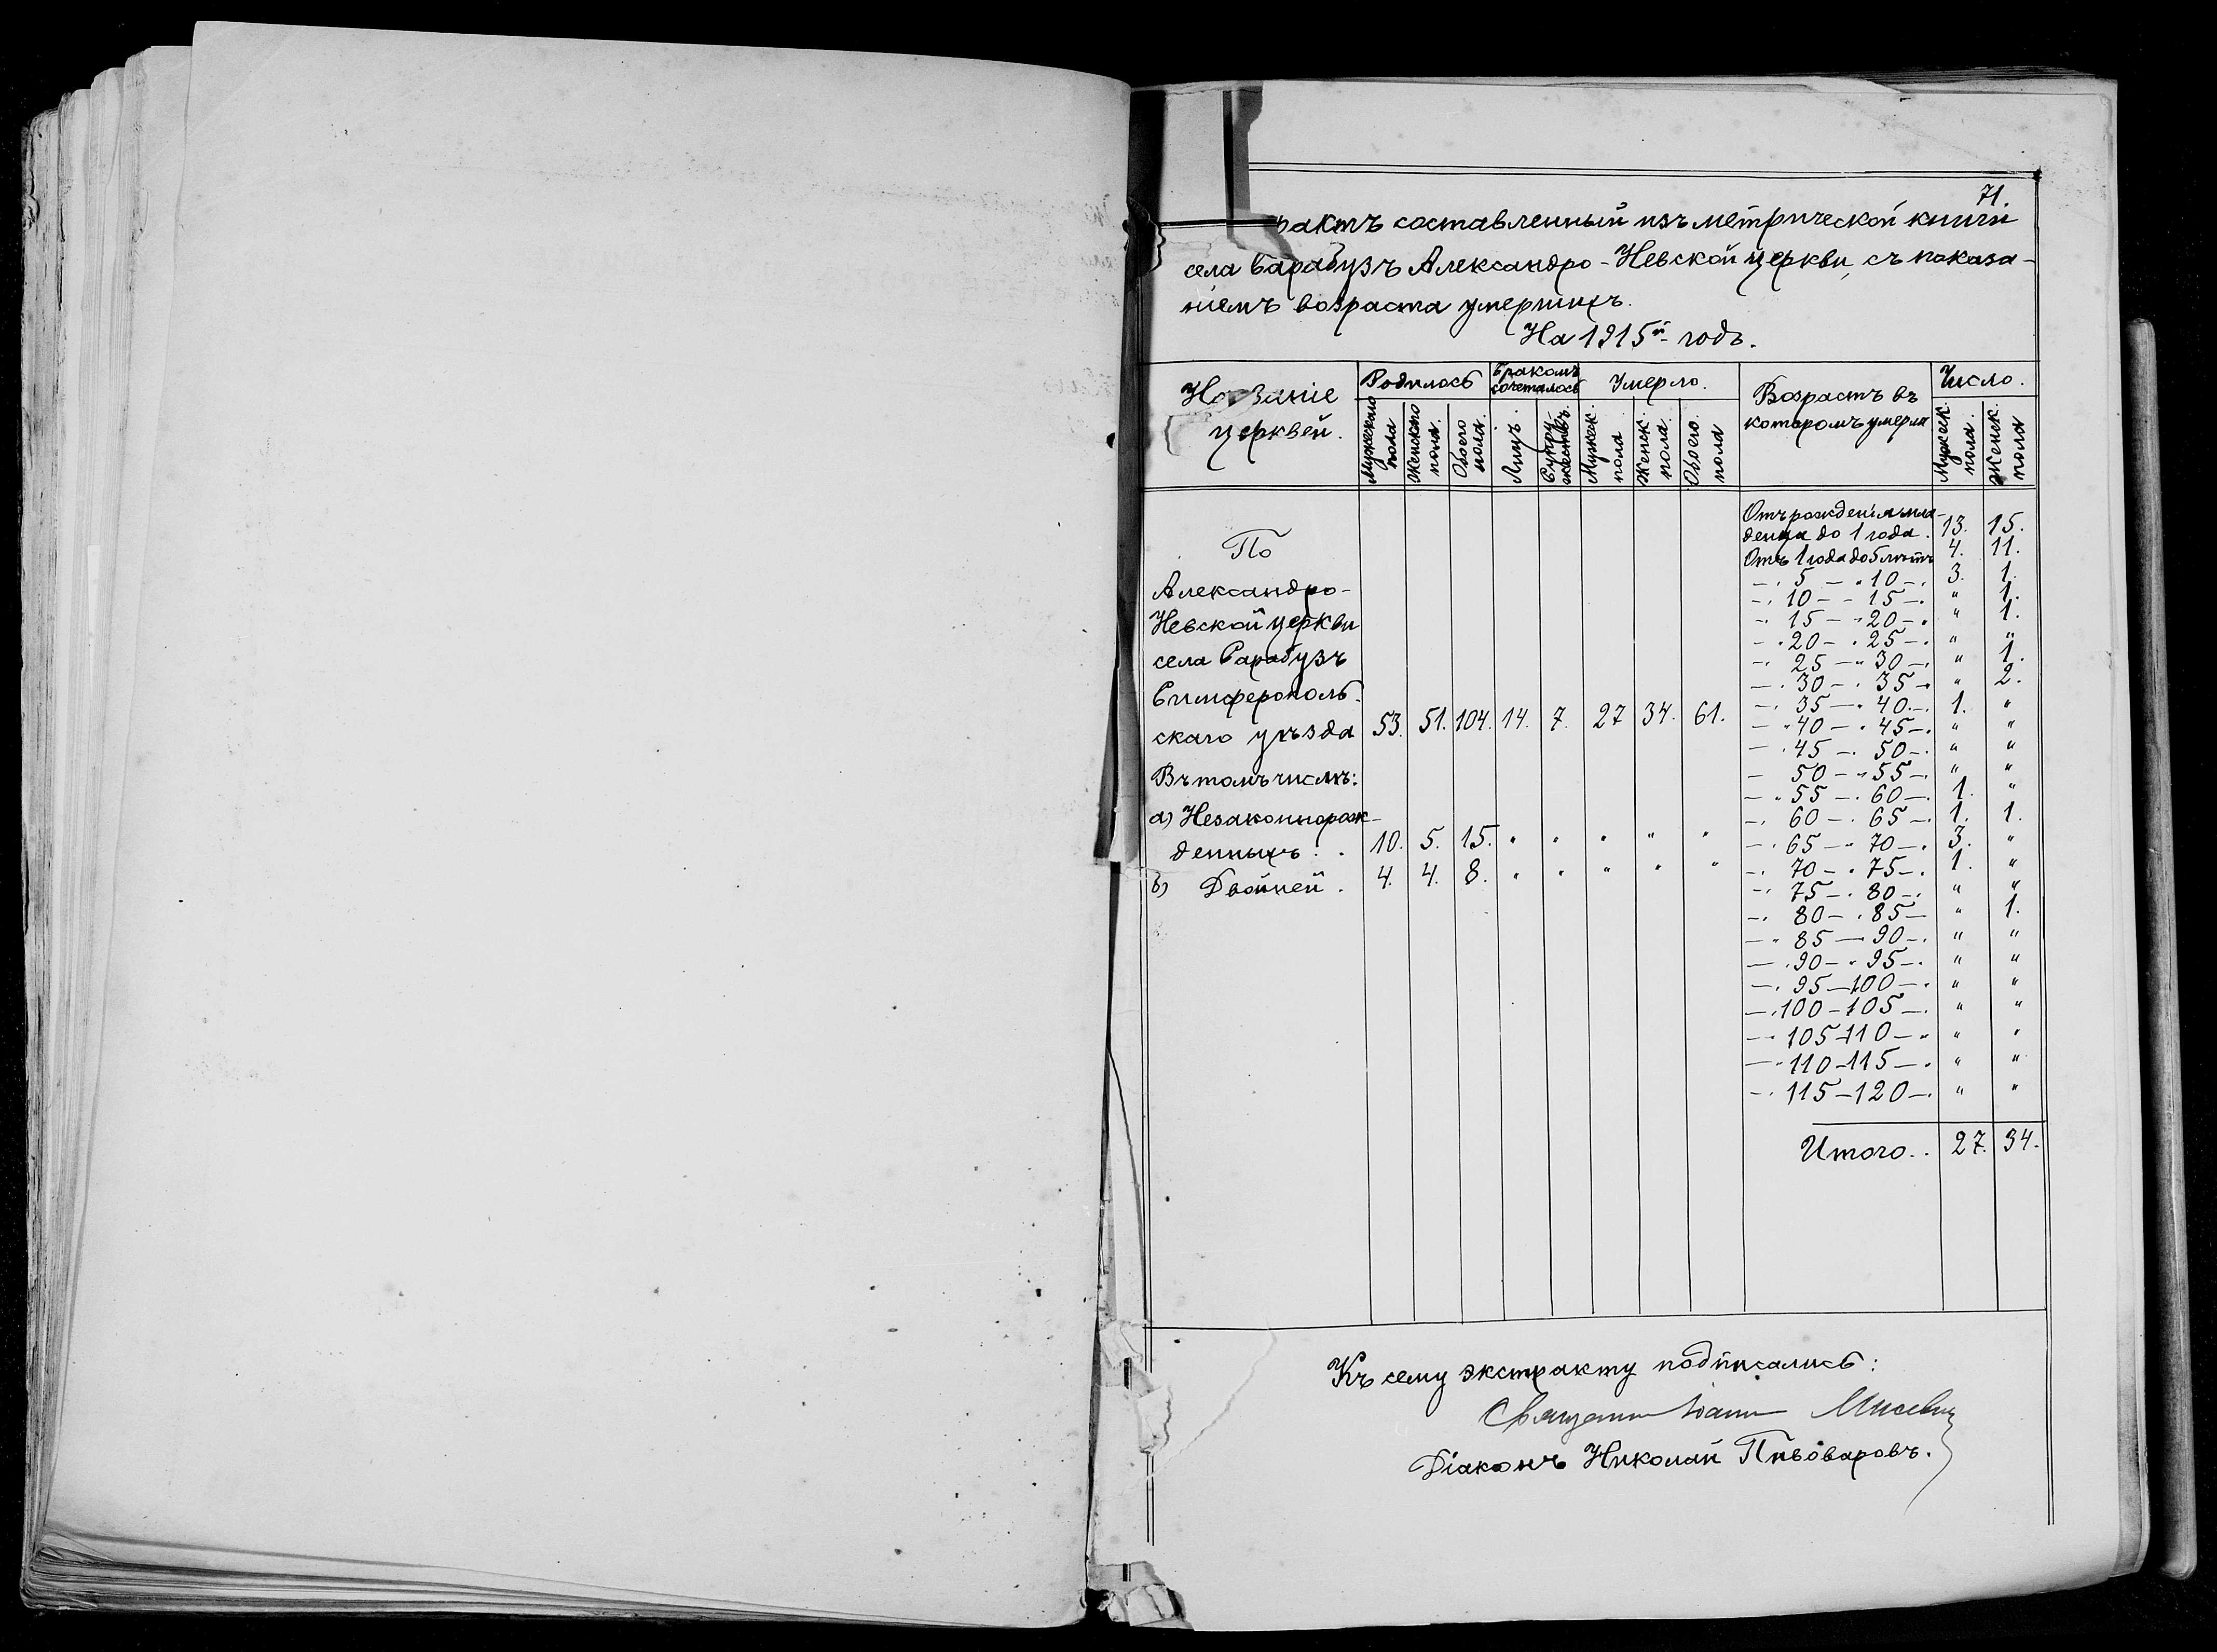 71.
рактъ составленный изъ метрической книги
села Сарабузъ Александро-Невской церкви, съ показа-
ніемъ возраста умершихъ.
На 1915й годъ.
Названіе церквей.
Родилось
Мужескаго пола
Женскаго пола.
Обоего пола.
Бракомъ сочеталось
Лицъ.
Супружествъ.
Умерло.
Мужеск. пола
Женск. пола.
Обоего. пола
Возрастъ въ которомъ умерли
Число.
Мужеск. пола.
Женск. пола
По
Александро-
Невской церкви
села Сарабузъ
Симферополь-
скаго уѣзда 53. 51. 104. 14. 7. 27 34. 61.
Въ томъ числѣ:
а) Незаконнорож-
денныхъ . . 10. 5. 15. " " " " "
б) Двойней . 4. 4. 8. " " " " "
Отъ рожденія мла-
денца до 1 года . 13. 15.
Отъ 1 года до 5 лѣтъ 4. 11.
—" 5 —" 10 —" 3. 1.
—" 10 —" 15 —" " 1.
—" 15 —" 20 —" " 1.
—" 20 —" 25 —" " "
—" 25 —" 30 —" " 1.
—" 30 —" 35 —" " 2.
—" 35 —" 40 —" 1. "
—" 40 —" 45 —" " "
—" 45 —" 50 —" " "
— 50 —" 55 —" " "
—" 55 —" 60 —" 1. "
—" 60 —" 65 —" 1. 1.
—" 65 —" 70 —" 3. "
—" 70 —" 75 —" 1. "
—" 75 —" 80 —" " "
—" 80 —" 85 — " 1.
—" 85 — 90 —" " "
—" 90 —" 95 —" " "
—" 95 — 100 —" " "
—" 100 — 105 —" " "
—" 105 — 110 —" " "
—" 110 — 115 —" " "
—" 115 — 120 —" " "
Итого. . 27. 34.
Къ сему экстракту подписались:
Священникъ Іоаннъ
Діаконъ Николай Пивоваровъ.